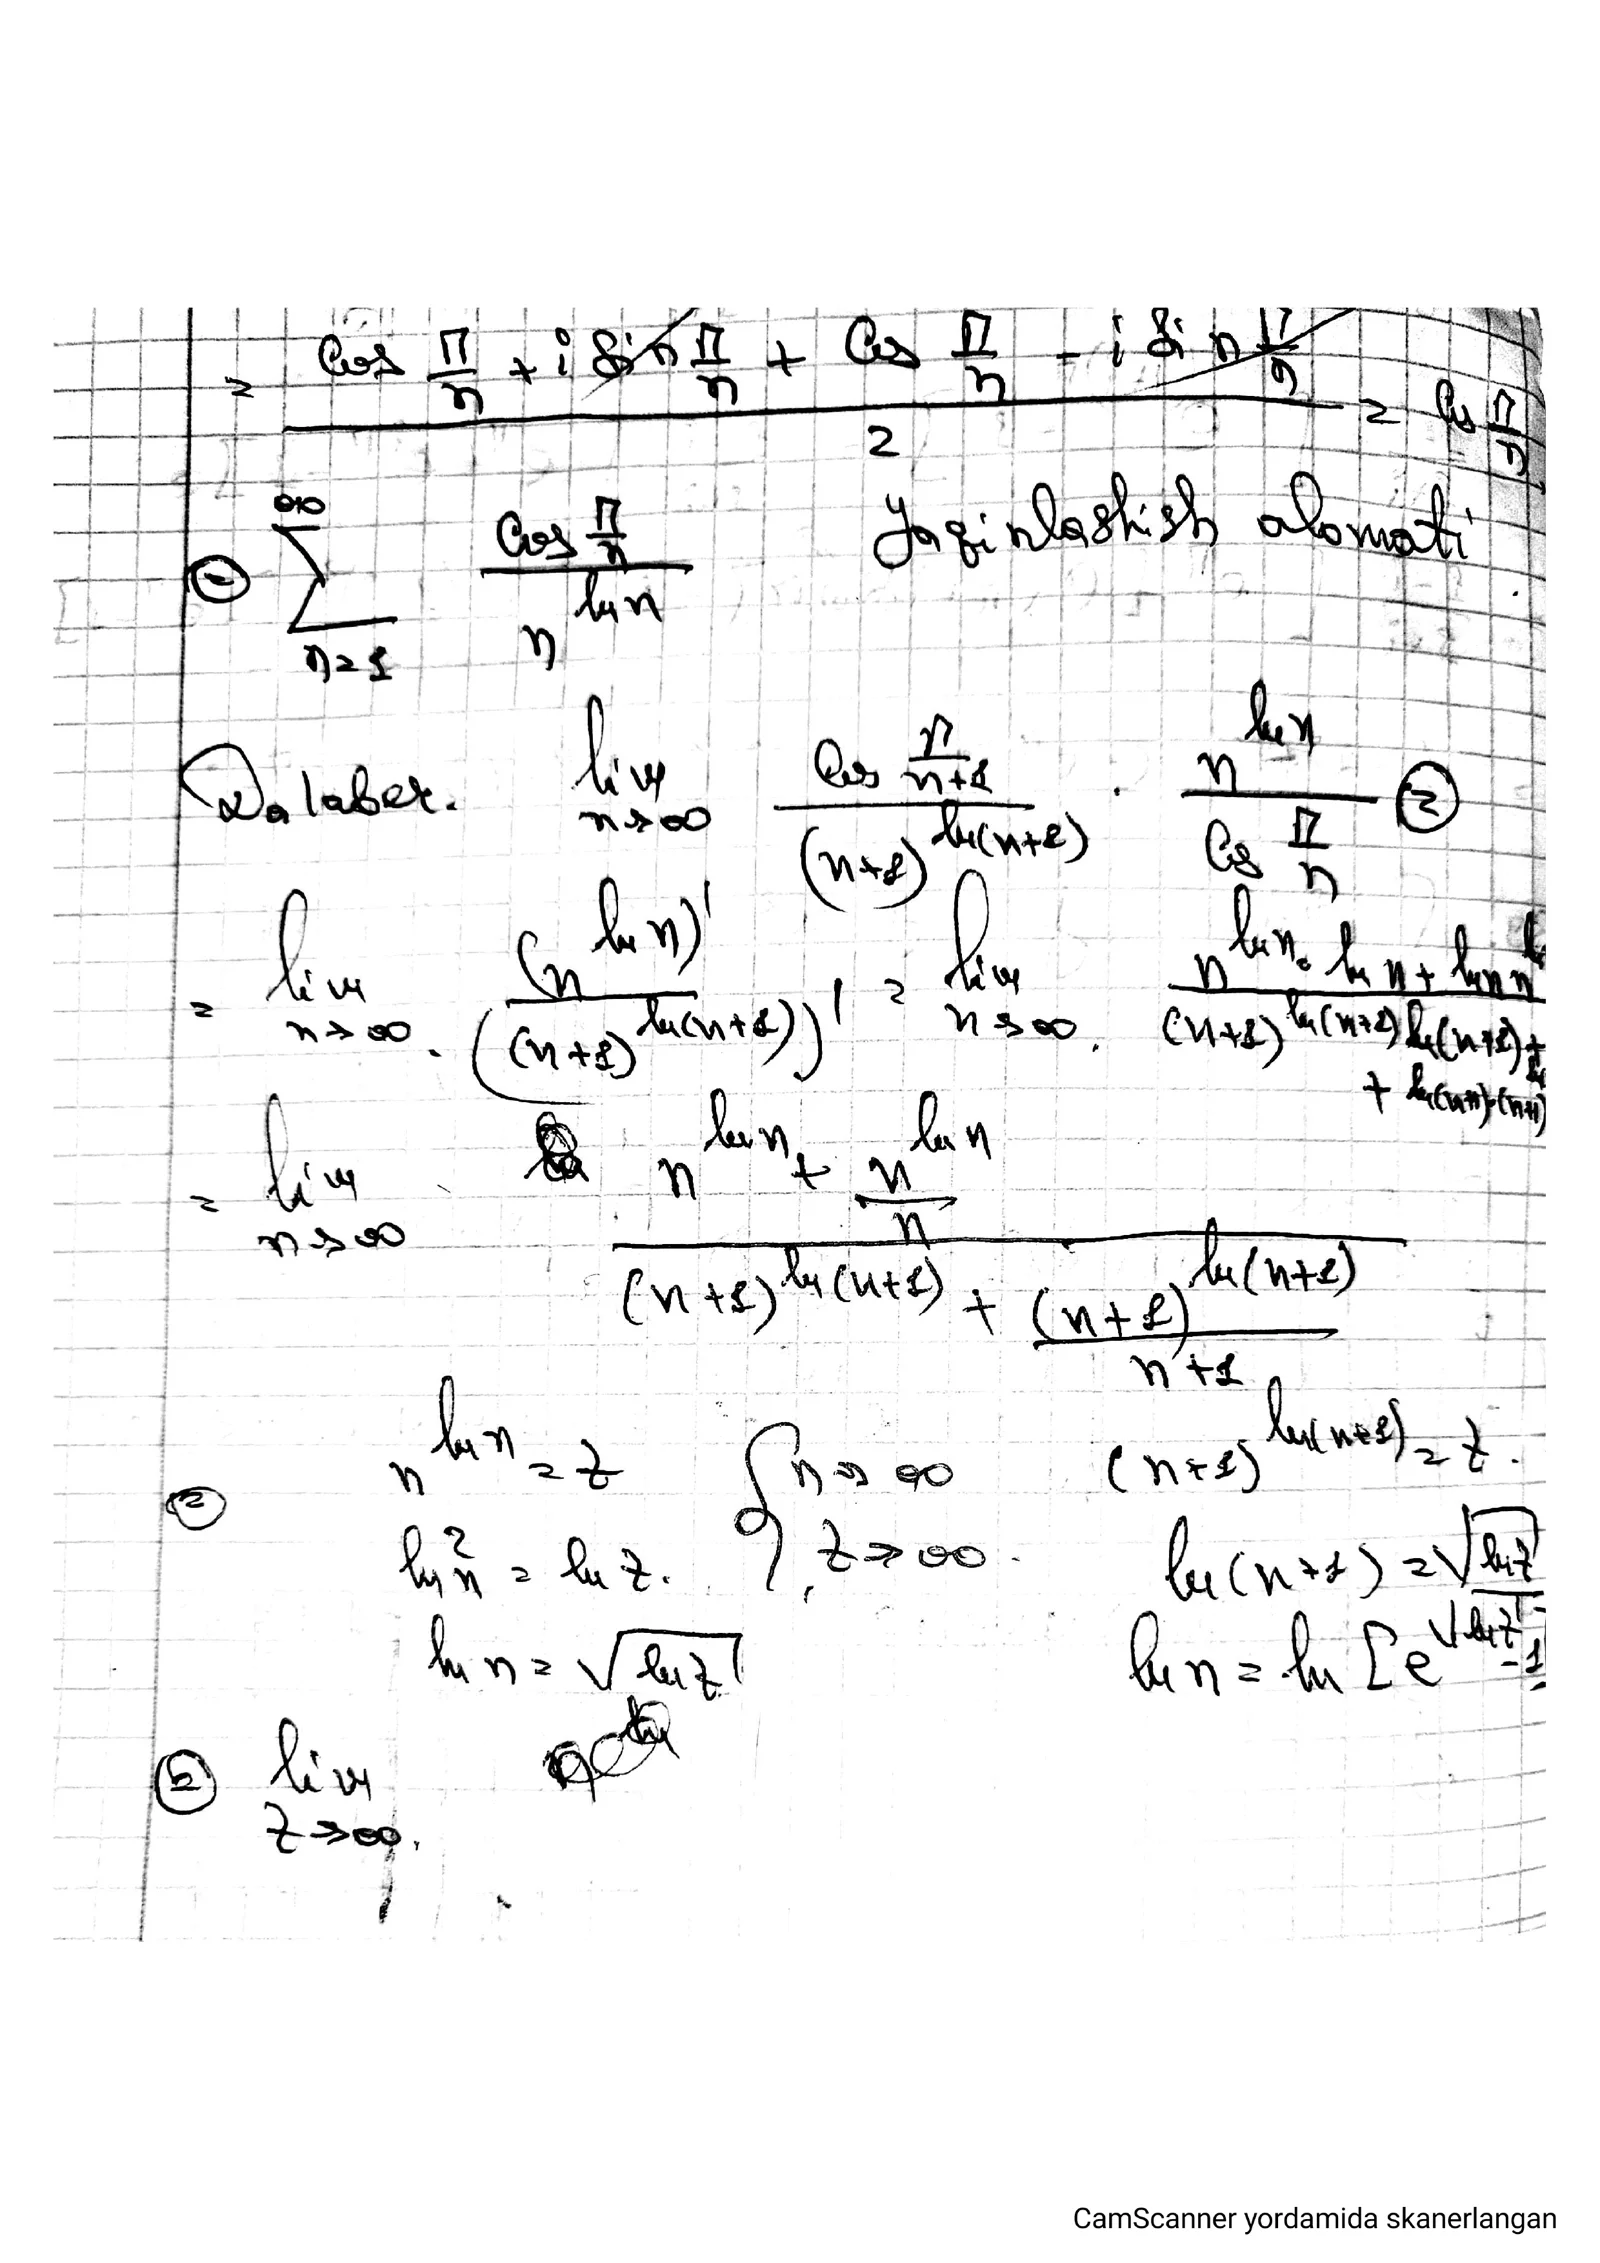 = (cos π/n + i sin π/n + cos π/n - i sin π/n) / 2 = cos π/n
= ∑_{n=1}^{∞} (cos π/n) / n^{ln n} Yaqinlashish alomati
Dalaber. lim_{n→∞} (cos π/(n+1)) / (n+1)^{ln(n+1)} · n^{ln n} / (cos π/n) =
= lim_{n→∞} (n^{ln n})' / ((n+1)^{ln(n+1)})' = lim_{n→∞} (n^{ln n} · ln n + ln n n) / ((n+1)^{ln(n+1)} ln(n+1) +
+ ln(n+1)·(n+1)
= lim_{n→∞} (n^{ln n} + n^{ln n}/n) / ((n+1)^{ln(n+1)} + (n+1)^{ln(n+1)}/(n+1))
= n^{ln n} = z { n→∞ (n+1)^{ln(n+1)} = z.
ln² n = ln z. z→∞ ln(n+1) = √(ln z)
ln n = √(ln z) ln n = ln [e^{√(ln z)} - 1
= lim_{z→∞}
CamScanner yordamida skanerlangan